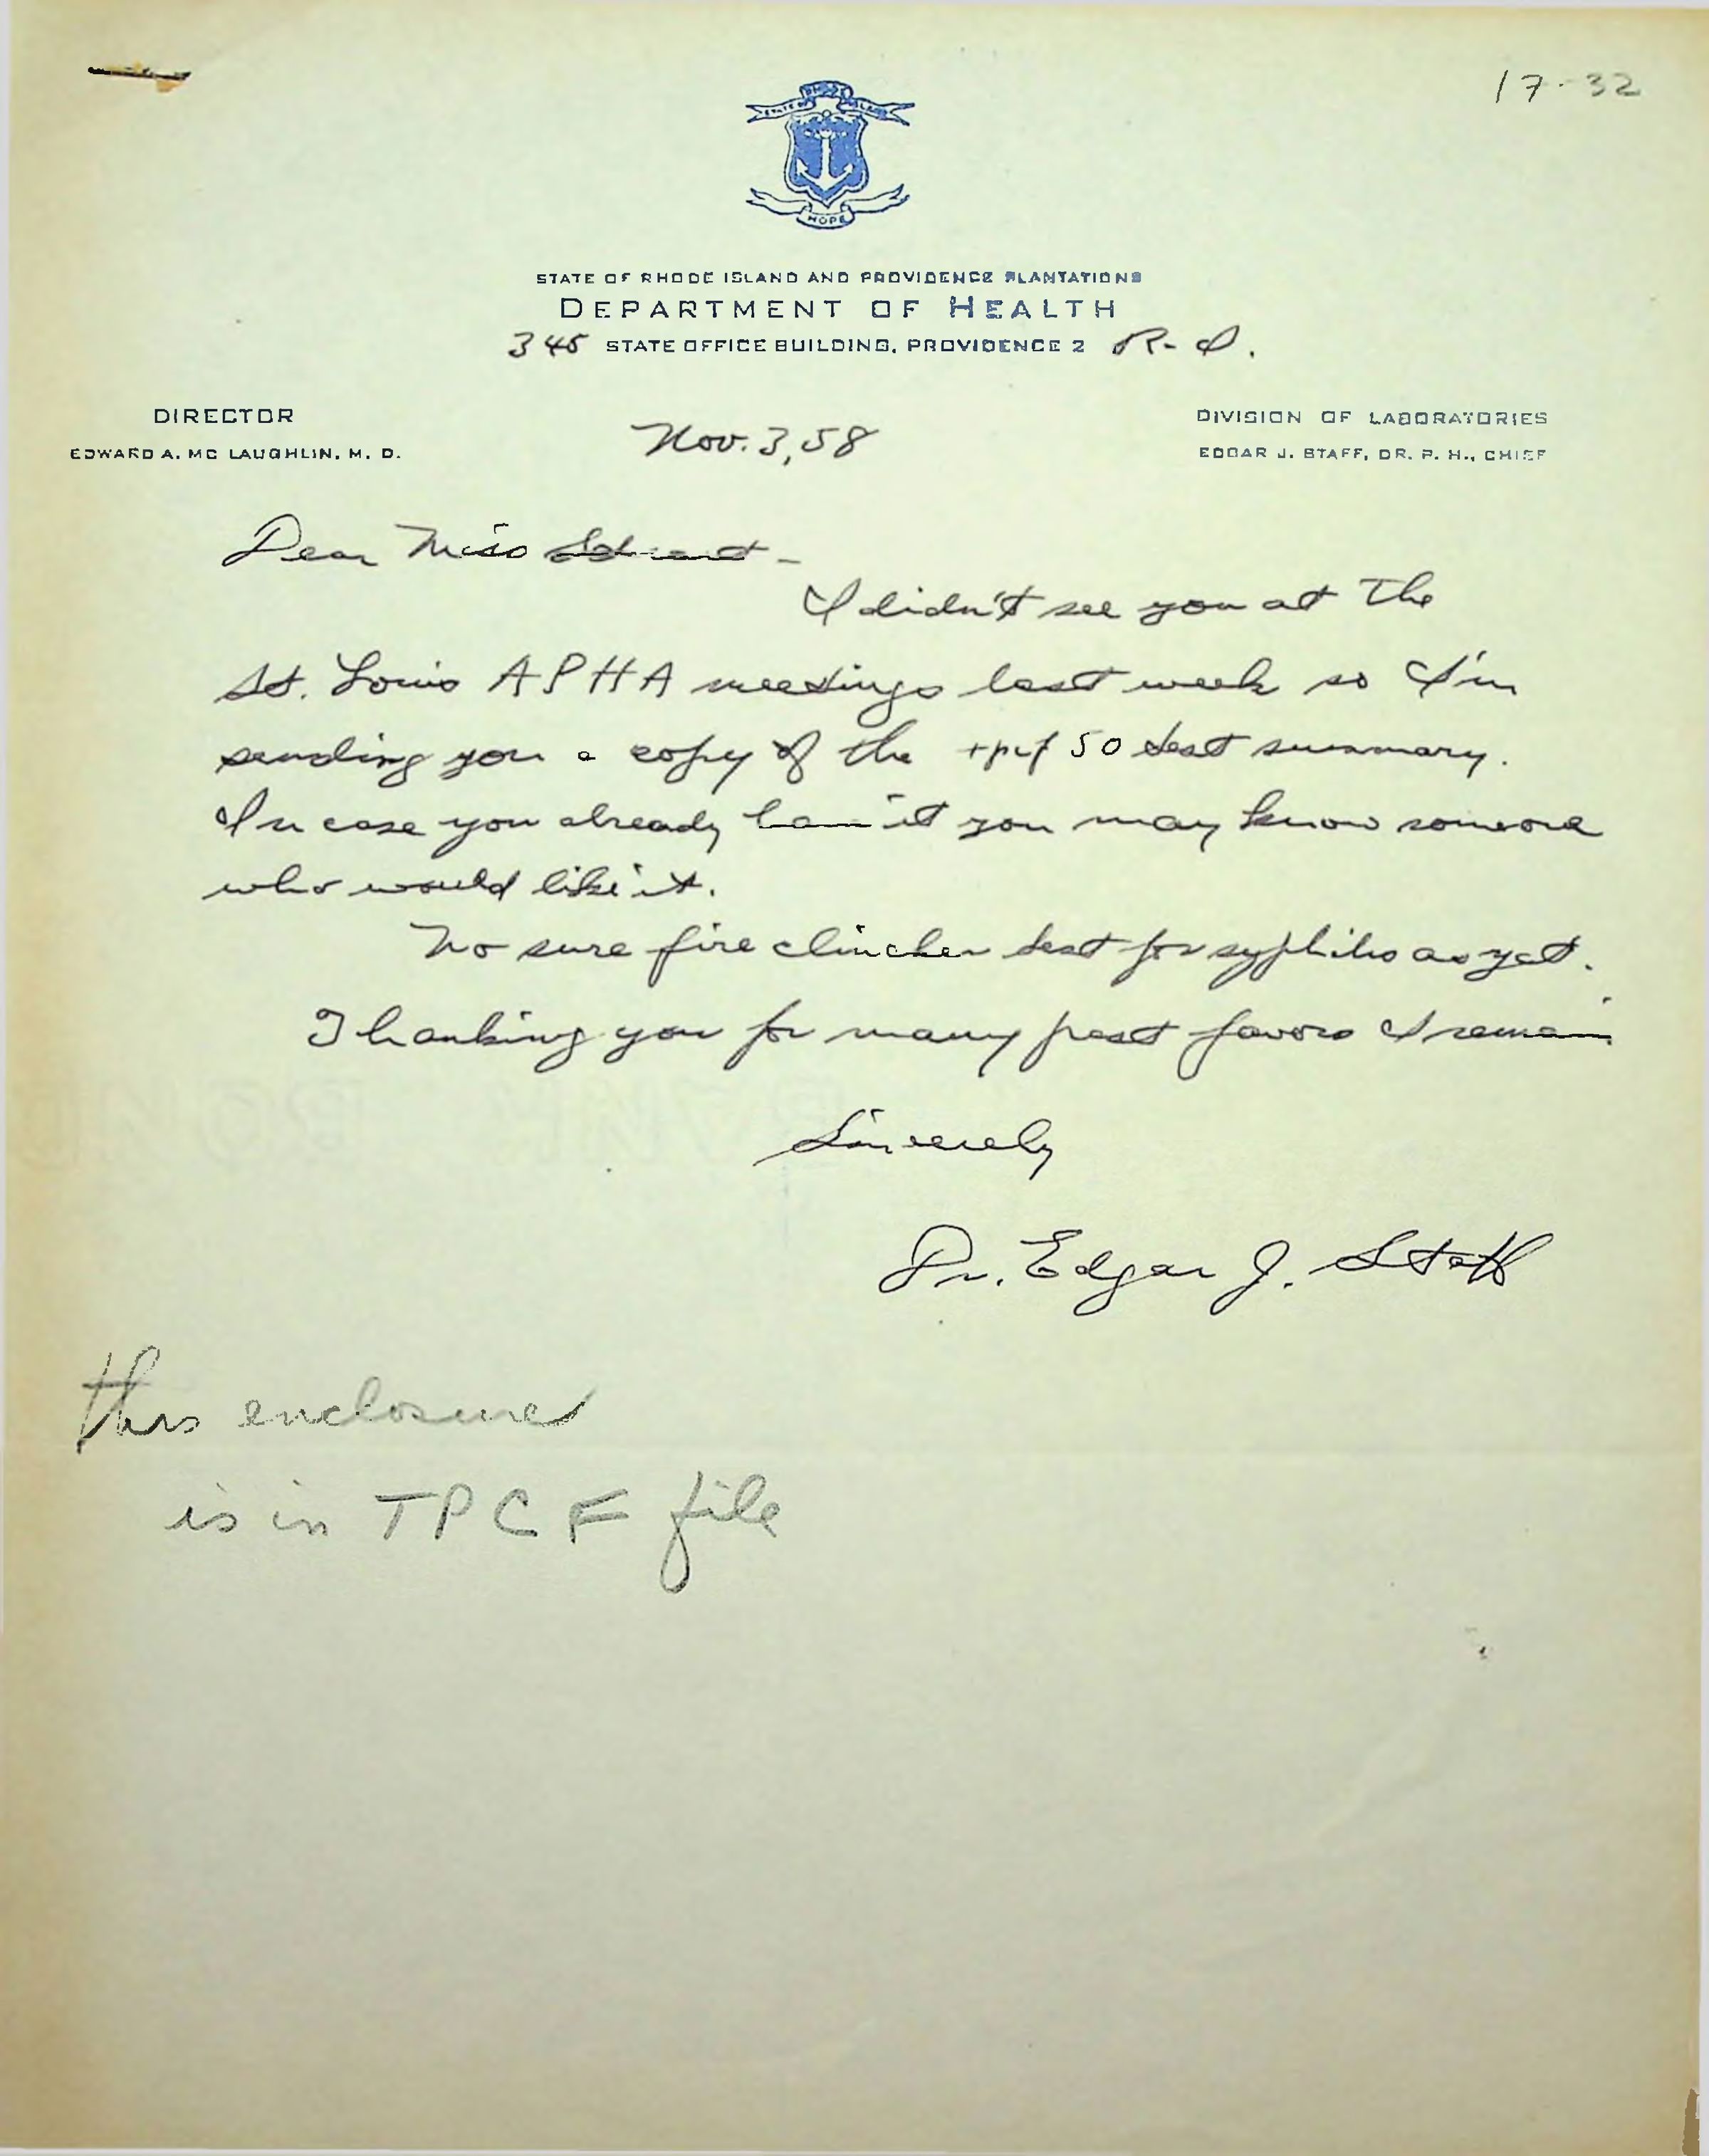 17-32
STATE OF RHODE ISLAND
HOPE
STATE OF RHODE ISLAND AND PROVIDENCE PLANTATIONS
DEPARTMENT OF HEALTH
345 STATE OFFICE BUILDING, PROVIDENCE 2 R-I.
DIRECTOR
EDWARD A. MC LAUGHLIN, M. D.
Nov. 3, 58
DIVISION OF LABORATORIES
EDGAR J. STAFF, DR. P. H., CHIEF
Dear Miss -
I didn't see you at the
St. Louis APHA meetings last week so I'm
sending you a copy of the tpcf 50 test summary.
In case you already have it you may know someone
who would like it.
No sure fire clincher test for syphilis as yet.
Thanking you for many past favors I remain
Sincerely
Dr. Edgar J. Staff
this enclosure
is in TPCF file